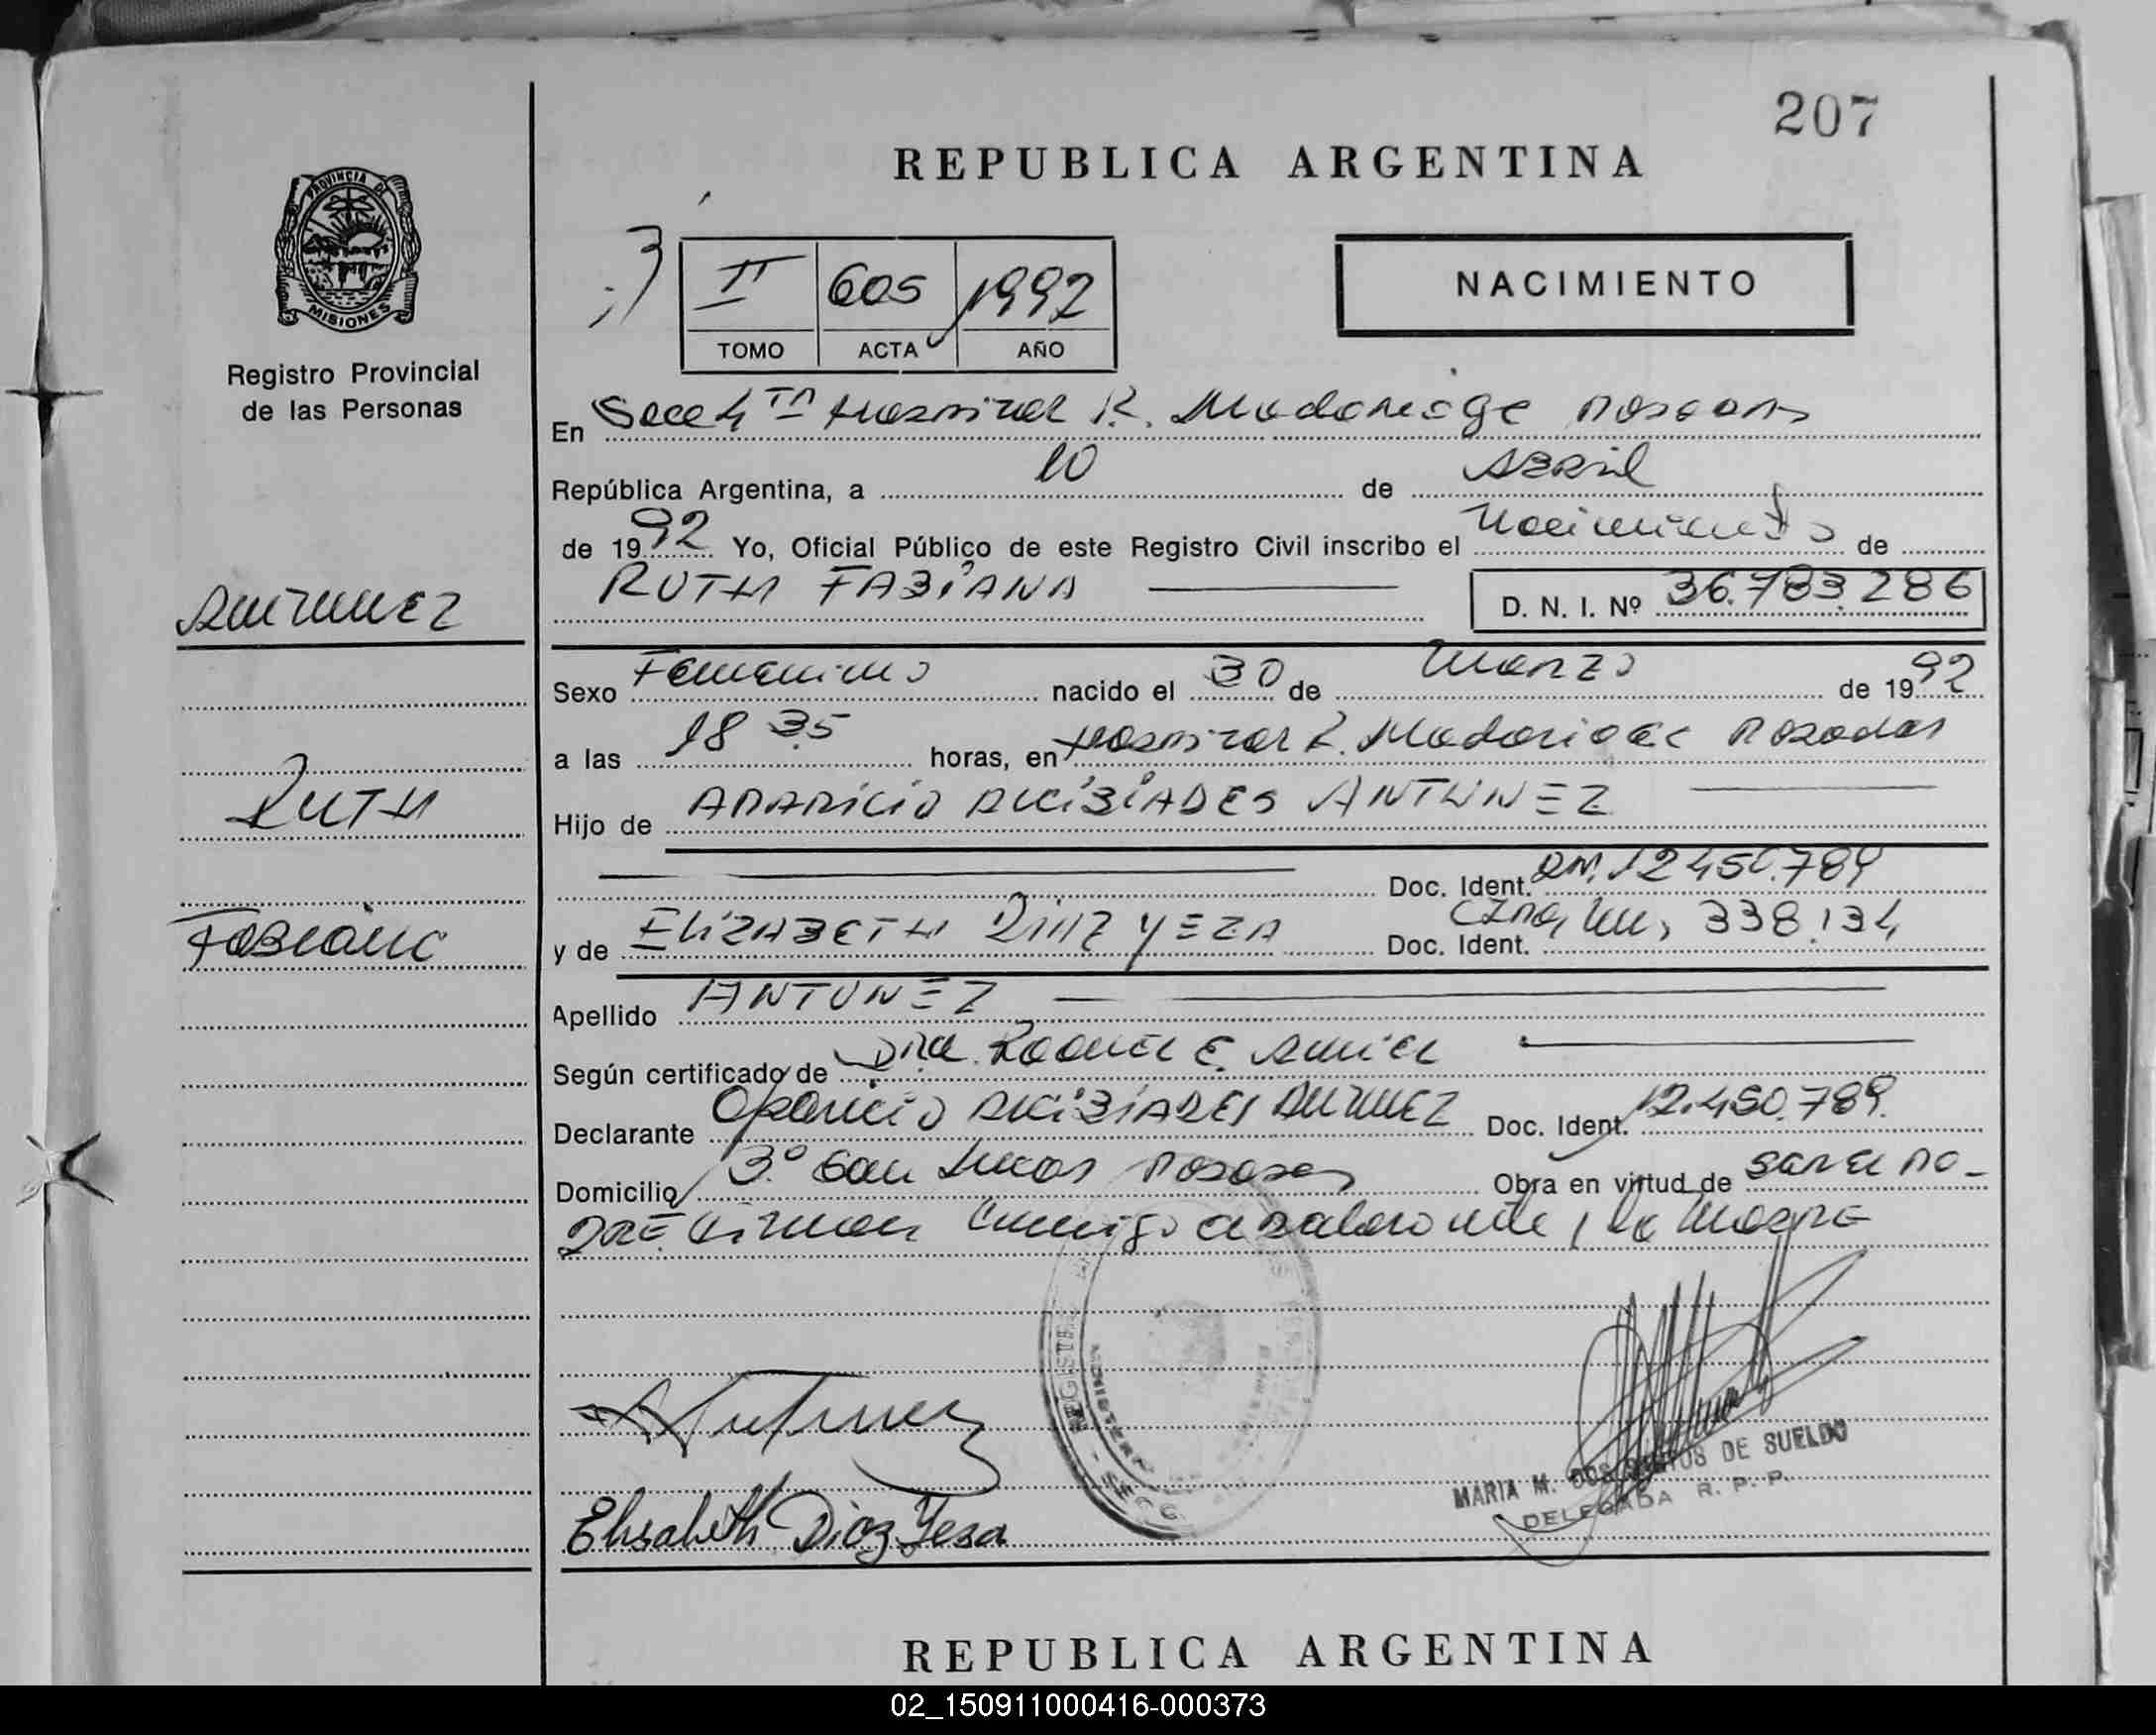 207
REPUBLICA ARGENTINA
PROVINCIA DE
MISIONES
Registro Provincial
de las Personas
II 605 1992
TOMO ACTA AÑO
NACIMIENTO
En Secc 4ta Hospital R. Madariaga Posadas
República Argentina, a 10 de ABRil
de 1992 Yo, Oficial Público de este Registro Civil inscribo el Nacimiento de
RUTH FABIANA D. N. I. Nº 36.783.286
ANTUNEZ
RUTH
FABIANA
Sexo Femenino nacido el 30 de Marzo de 1992
a las 18 35 horas, en Hospital R. Madariaga Posadas
Hijo de APARICIO ALCIBIADES ANTUNEZ
Doc. Ident. DNI. 12.450.789
y de ELIZABETH DIAZ YEZA Doc. Ident. 338.134
Apellido ANTUNEZ
Según certificado de Dra. Raquel E.
Declarante Aparicio ALCIBIADES ANTUNEZ Doc. Ident. 12.450.789.
Domicilio San Lucas Posadas Obra en virtud de Ser el PA-
DRE firman conmigo el declarante y la MADRE
Antunez
Elisabeth Diaz Yesa
MARIA M. DOS SANTOS DE SUELDO
DELEGADA R. P. P.
REPUBLICA ARGENTINA
02_150911000416-000373